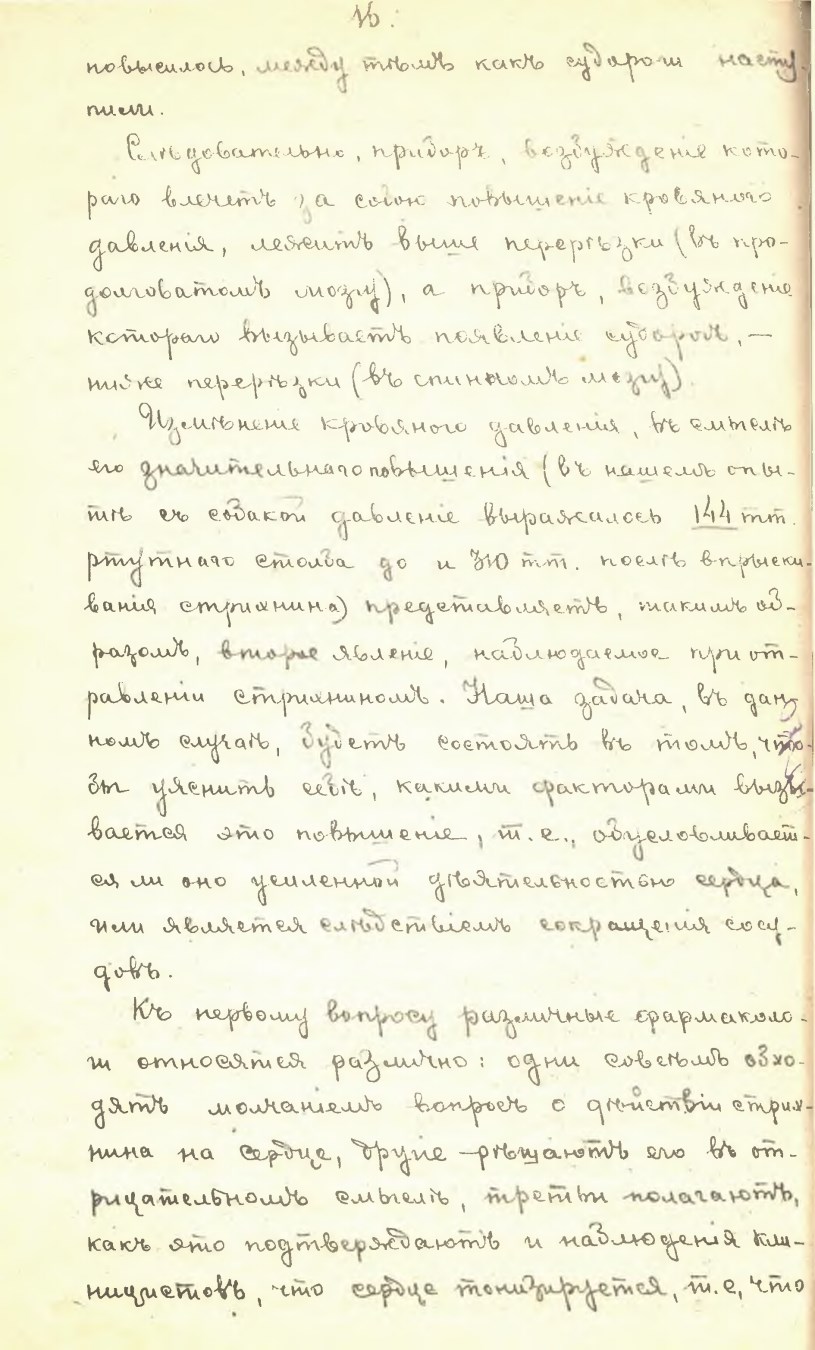 16.
повысилось, между тѣмъ какъ судороги насту-
пили.
Слѣдовательно, приборъ, возбужденіе кото-
раго влечетъ за собою повышеніе кровяного
давленія, лежитъ выше перерѣзки (въ про-
долговатомъ мозгу), а приборъ, возбужденіе
котораго вызываетъ появленіе судорогъ, —
ниже перерѣзки (въ спинномъ мозгу)
Измѣненіе кровяного давленія, въ смыслѣ
его значительнаго повышенія (въ нашемъ опы-
тѣ съ собакой давленіе выражалось 144 mm.
ртутнаго столба до и 310 mm. послѣ впрыски-
ванія стрихнина) представляетъ, такимъ об-
разомъ, второе явленіе, наблюдаемое при от-
равленіи стрихниномъ. Наша задача, въ дан-
номъ случаѣ, будетъ состоять въ томъ, что-
бы уяснить себѣ, какими факторами вызы-
вается это повышеніе, т. е., обусловливает-
ся ли оно усиленной дѣятельностью сердца,
или является слѣдствіемъ сокращенія сосу-
довъ.
Къ первому вопросу различные фармаколо-
ги относятся различно: одни совсѣмъ обхо-
дятъ молчаніемъ вопросъ о дѣйствіи стрих-
нина на сердце, другіе рѣшаютъ его въ от-
рицательномъ смыслѣ, третьи полагаютъ,
какъ это подтверждаютъ и наблюденія кли-
ницистовъ, что сердце тонизируется, т. е, что